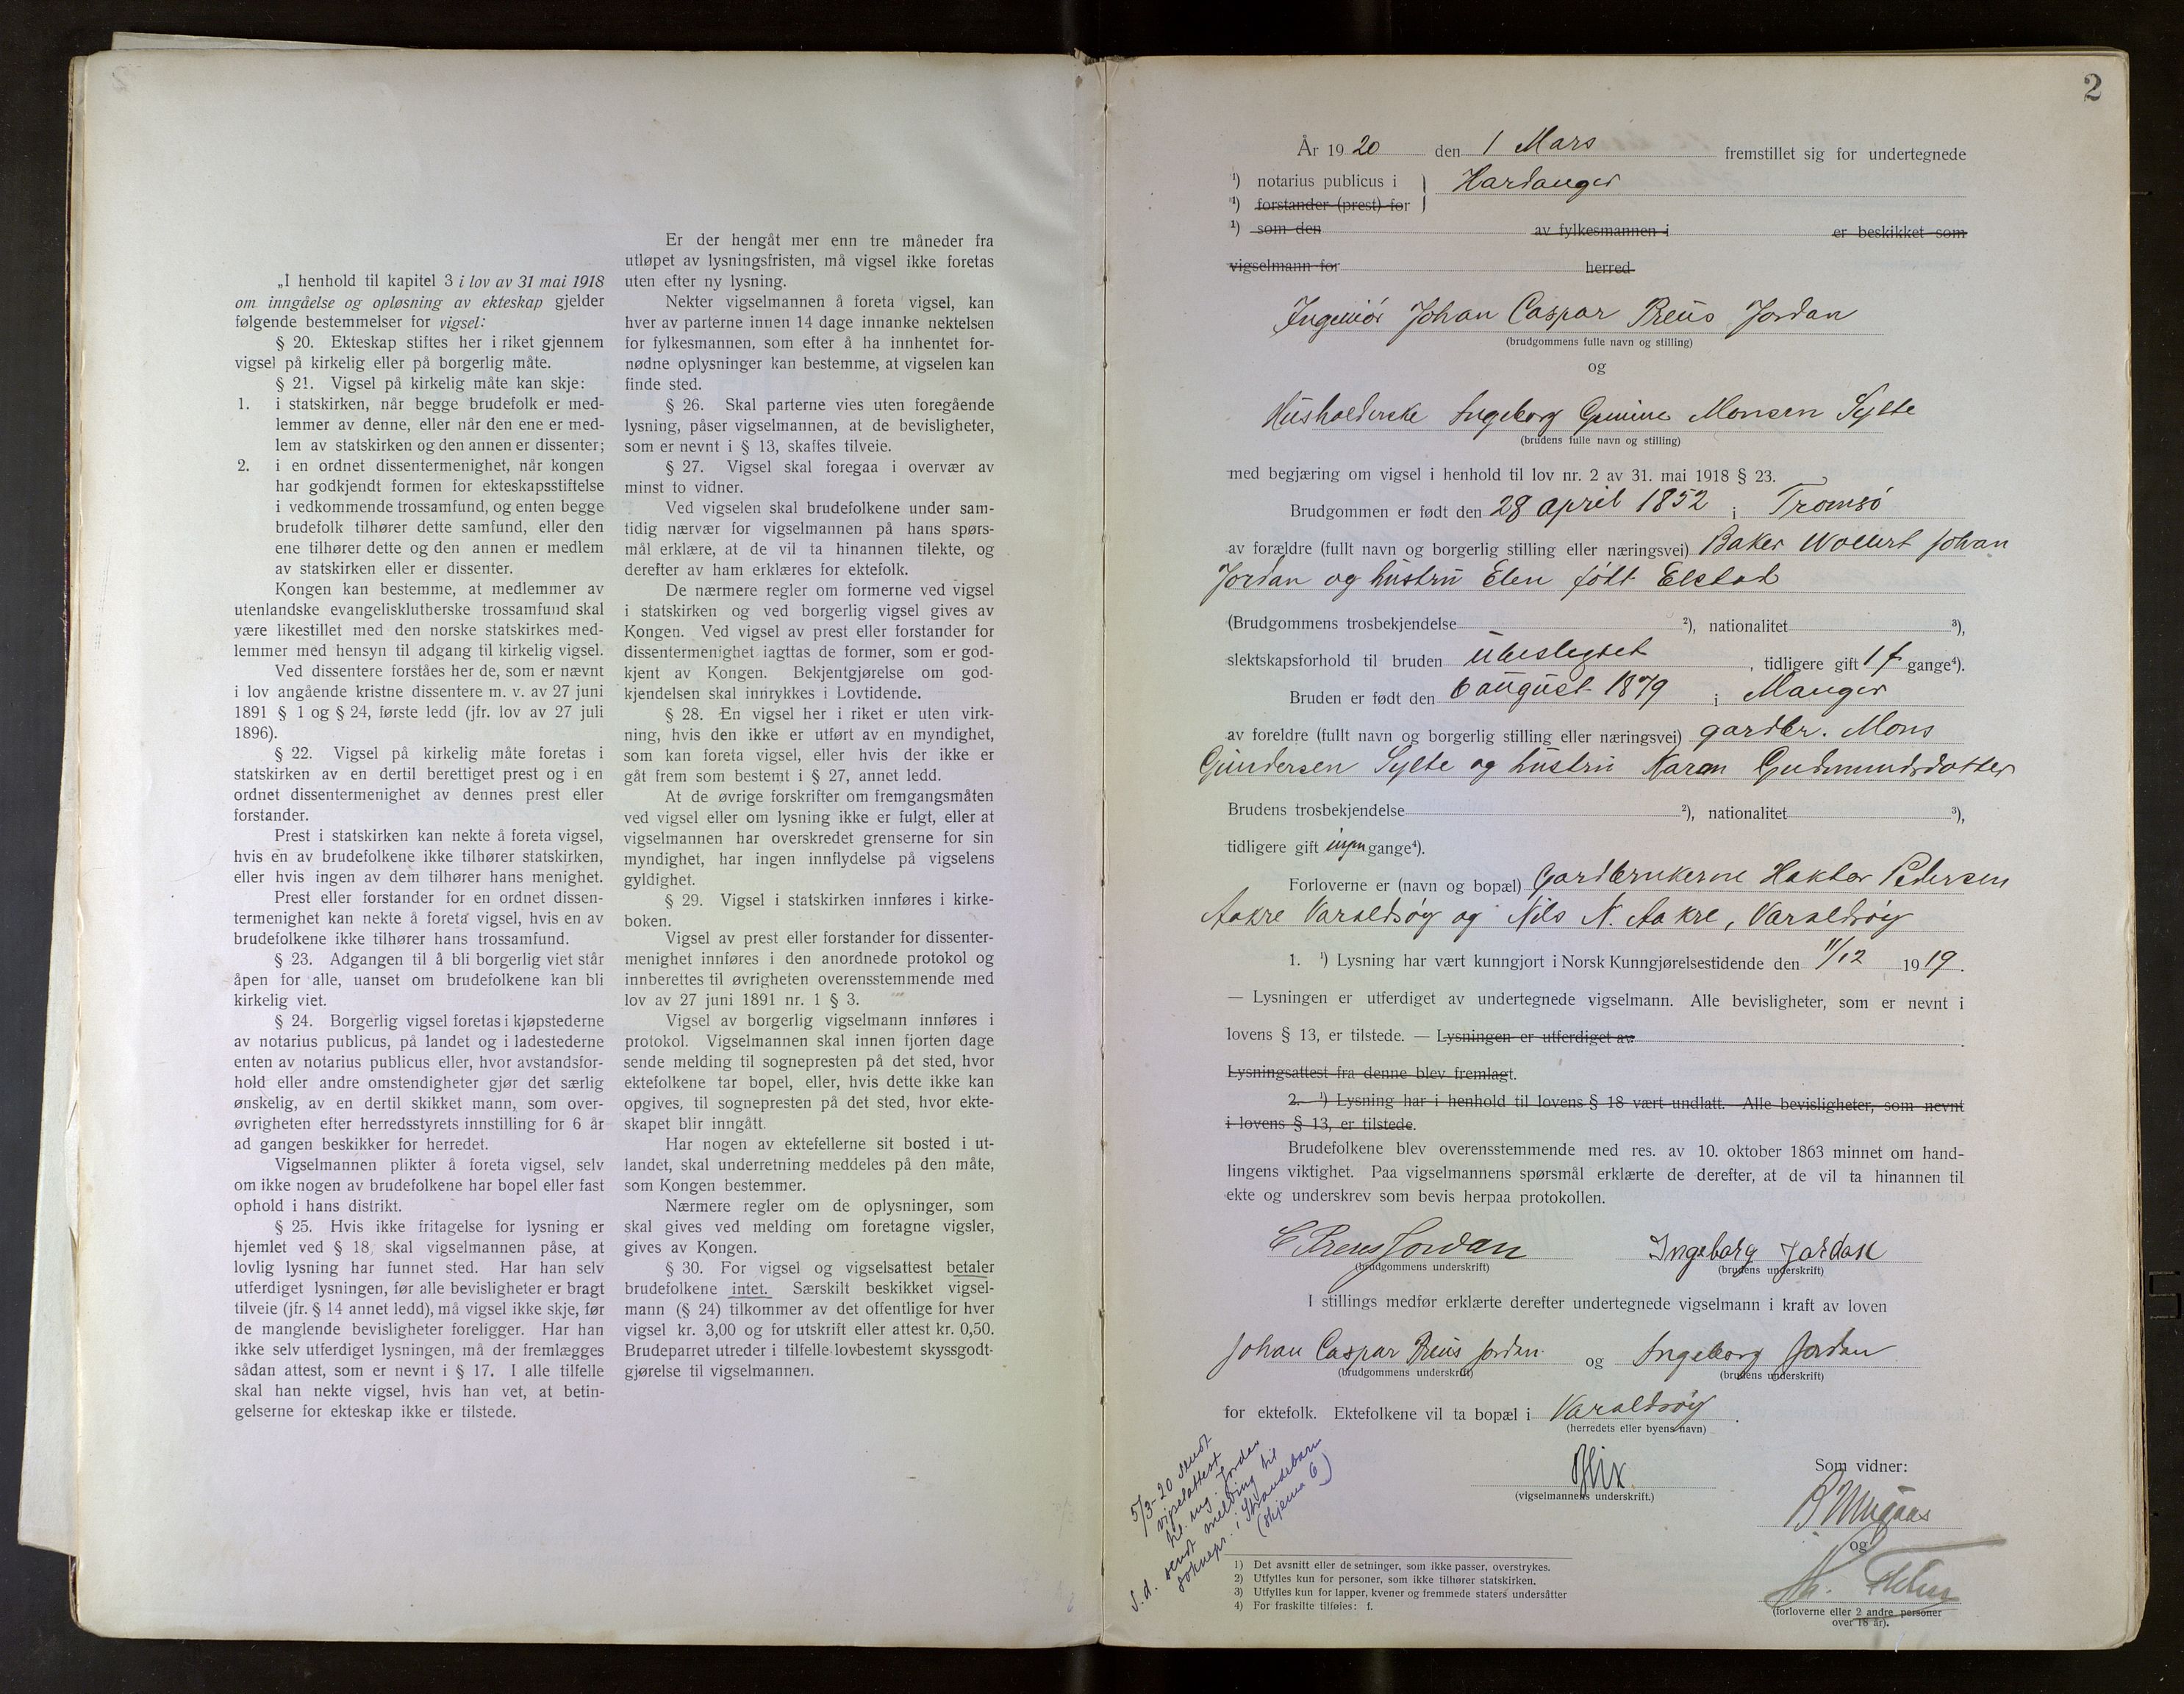 „I henhold til kapitel 3 i lov av 31 mai 1918
om inngåelse og opløsning av ekteskap gjelder
følgende bestemmelser for vigsel:
§ 20. Ekteskap stiftes her i riket gjennem
vigsel på kirkelig eller på borgerlig måte.
§ 21. Vigsel på kirkelig måte kan skje:
1. i statskirken, når begge brudefolk er med-
lemmer av denne, eller når den ene er med-
lem av statskirken og den annen er dissenter;
2. i en ordnet dissentermenighet, når kongen
har godkjendt formen for ekteskapsstiftelse
i vedkommende trossamfund, og enten begge
brudefolk tilhører dette samfund, eller den
ene tilhører dette og den annen er medlem
av statskirken eller er dissenter.
Kongen kan bestemme, at medlemmer av
utenlandske evangelisklutherske trossamfund skal
være likestillet med den norske statskirkes med-
lemmer med hensyn til adgang til kirkelig vigsel.
Ved dissentere forståes her de, som er nævnt
i lov angående kristne dissentere m. v. av 27 juni
1891 § 1 og § 24, første ledd (jfr. lov av 27 juli
1896).
§ 22. Vigsel på kirkelig måte foretas i
statskirken av en dertil berettiget prest og i en
ordnet dissentermenighet av dennes prest eller
forstander.
Prest i statskirken kan nekte å foreta vigsel,
hvis en av brudefolkene ikke tilhører statskirken,
eller hvis ingen av dem tilhører hans menighet.
Prest eller forstander for en ordnet dissen-
termenighet kan nekte å foreta vigsel, hvis en av
brudefolkene ikke tilhører hans trossamfund.
§ 23. Adgangen til å bli borgerlig viet står
åpen for alle, uanset om brudefolkene kan bli
kirkelig viet.
§ 24. Borgerlig vigsel foretas i kjøpstederne
av notarius publicus, på landet og i ladestederne
enten av notarius publicus eller, hvor avstandsfor-
hold eller andre omstendigheter gjør det særlig
ønskelig, av en dertil skikket mann, som over-
øvrigheten efter herredsstyrets innstilling for 6 år
ad gangen beskikker for herredet.
Vigselmannen plikter å foreta vigsel, selv
om ikke nogen av brudefolkene har bopel eller fast
ophold i hans distrikt.
§ 25. Hvis ikke fritagelse for lysning er
hjemlet ved § 18, skal vigselmannen påse, at
lovlig lysning har funnet sted. Har han selv
utferdiget lysningen, før alle bevisligheter er bragt
tilveie (jfr. § 14 annet ledd), må vigsel ikke skje, før
de manglende bevisligheter foreligger. Har han
ikke selv utferdiget lysningen, må der fremlægges
sådan attest, som er nevnt i § 17. I alle tilfelle
skal han nekte vigsel, hvis han vet, at betin-
gelserne for ekteskap ikke er tilstede.
Er der hengåt mer enn tre måneder fra
utløpet av lysningsfristen, må vigsel ikke foretas
uten efter ny lysning.
Nekter vigselmannen å foreta vigsel, kan
hver av parterne innen 14 dage innanke nektelsen
for fylkesmannen, som efter å ha innhentet for-
nødne oplysninger kan bestemme, at vigselen kan
finde sted.
§ 26. Skal parterne vies uten foregående
lysning, påser vigselmannen, at de bevisligheter,
som er nevnt i § 13, skaffes tilveie.
§ 27. Vigsel skal foregaa i overvær av
minst to vidner.
Ved vigselen skal brudefolkene under sam-
tidig nærvær for vigselmannen på hans spørs-
mål erklære, at de vil ta hinannen tilekte, og
derefter av ham erklæres for ektefolk.
De nærmere regler om formerne ved vigsel
i statskirken og ved borgerlig vigsel gives av
Kongen. Ved vigsel av prest eller forstander for
dissentermenighet iagttas de former, som er god-
kjent av Kongen. Bekjentgjørelse om god-
kjendelsen skal innrykkes i Lovtidende.
§ 28. En vigsel her i riket er uten virk-
ning, hvis den ikke er utført av en myndighet,
som kan foreta vigsel, eller hvis der ikke er
gåt frem som bestemt i § 27, annet ledd.
At de øvrige forskrifter om fremgangsmåten
ved vigsel eller om lysning ikke er fulgt, eller at
vigselmannen har overskredet grenserne for sin
myndighet, har ingen innflydelse på vigselens
gyldighet.
§ 29. Vigsel i statskirken innføres i kirke-
boken.
Vigsel av prest eller forstander for dissenter-
menighet innføres i den anordnede protokol og
innberettes til øvrigheten overensstemmende med
lov av 27 juni 1891 nr. 1 § 3.
Vigsel av borgerlig vigselmann innføres i
protokol. Vigselmannen skal innen fjorten dage
sende melding til sognepresten på det sted, hvor
ektefolkene tar bopel, eller, hvis dette ikke kan
opgives, til sognepresten på det sted, hvor ekte-
skapet blir inngått.
Har nogen av ektefellerne sit bosted i ut-
landet, skal underretning meddeles på den måte,
som Kongen bestemmer.
Nærmere regler om de oplysninger, som
skal gives ved melding om foretagne vigsler,
gives av Kongen.
§ 30. For vigsel og vigselsattest betaler
brudefolkene intet. Særskilt beskikket vigsel-
mann (§ 24) tilkommer av det offentlige for hver
vigsel kr. 3,00 og for utskrift eller attest kr. 0,50.
Brudeparret utreder i tilfelle lovbestemt skyssgodt-
gjørelse til vigselmannen.
2
År 1920 den 1 Mars fremstillet sig for undertegnede
1) notarius publicus i Hardanger
1) forstander (prest) for
1) som den av fylkesmannen i er beskikket som
vigselmann for herred
Ingeniør Johan Caspar Preus Jordan
(brudgommens fulle navn og stilling)
og
Husholderske Ingeborg Gurine Monsen Sylte
(brudens fulle navn og stilling)
med begjæring om vigsel i henhold til lov nr. 2 av 31. mai 1918 § 23.
Brudgommen er født den 28 april 1852 i Tromsø
av forældre (fullt navn og borgerlig stilling eller næringsvei) Baker Wollert Johan
Jordan og hustru Elen født Elstad
(Brudgommens trosbekjendelse 2), nationalitet 3),
slektskapsforhold til bruden ubeslegtet, tidligere gift 1 f gange4).
Bruden er født den 6 august 1879 i Manger
av foreldre (fullt navn og borgerlig stilling eller næringsvei) gardbr. Mons
Gundersen Sylte og hustru Karen Gudmundsdotter
Brudens trosbekjendelse 2), nationalitet 3),
tidligere gift ingen gange4).
Forloverne er (navn og bopæl) Gardbrukerne Haktor Pedersen
Aakre Varaldsøy og Nils N. Aakre, Varaldsøy
1. 1) Lysning har vært kunngjort i Norsk Kunngjørelsestidende den 11/12 1919.
— Lysningen er utferdiget av undertegnede vigselmann. Alle bevisligheter, som er nevnt i
lovens § 13, er tilstede. — Lysningen er utferdiget av
Lysningsattest fra denne blev fremlagt.
2. 1) Lysning har i henhold til lovens § 18 vært undlatt. Alle bevisligheter, som nevnt
i lovens § 13, er tilstede.
Brudefolkene blev overensstemmende med res. av 10. oktober 1863 minnet om hand-
lingens viktighet. Paa vigselmannens spørsmål erklærte de derefter, at de vil ta hinannen til
ekte og underskrev som bevis herpaa protokollen.
C Preus Jordan Ingeborg Jordan
(brudgommens underskrift) (brudens underskrift)
I stillings medfør erklærte derefter undertegnede vigselmann i kraft av loven
Johan Caspar Preus Jordan og Ingeborg Jordan
(brudgommens underskrift) (brudens underskrift)
for ektefolk. Ektefolkene vil ta bopæl i Varaldsøy.
(herredets eller byens navn)
(vigselmannens underskrift.)
Som vidner:
og
(forloverne eller 2 andre personer
over 18 år).
5/3-20 sendt
vigselattest
til ing. Jordan
S.d. sendt melding til
soknepr. i Strandebarm
(skjema 6)
1) Det avsnitt eller de setninger, som ikke passer, overstrykes.
2) Utfylles kun for personer, som ikke tilhører statskirken.
3) Utfylles kun for lapper, kvener og fremmede staters undersåtter
4) For fraskilte tilføies: f.